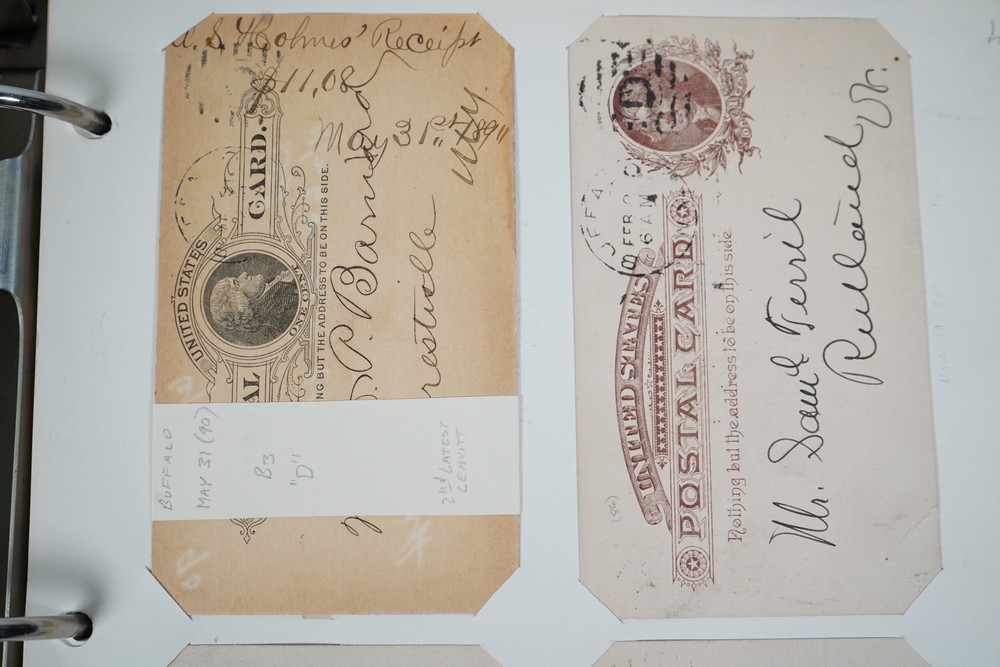 A. S. Holmes' Receipt
$11,08
May 31st 1890
UNITED STATES
CARD.
ONE CENT
NG BUT THE ADDRESS TO BE ON THIS SIDE.
P. Barnard
N.Y.
BUFFALO
MAY 31 (90)
B3
"D"
2nd LATEST
LEAVITT
D
FEB
6 AM
UNITED STATES
POSTAL CARD
Nothing but the address to be on this side
Mr. Saml Terril
Rutland
Vt.
(86)